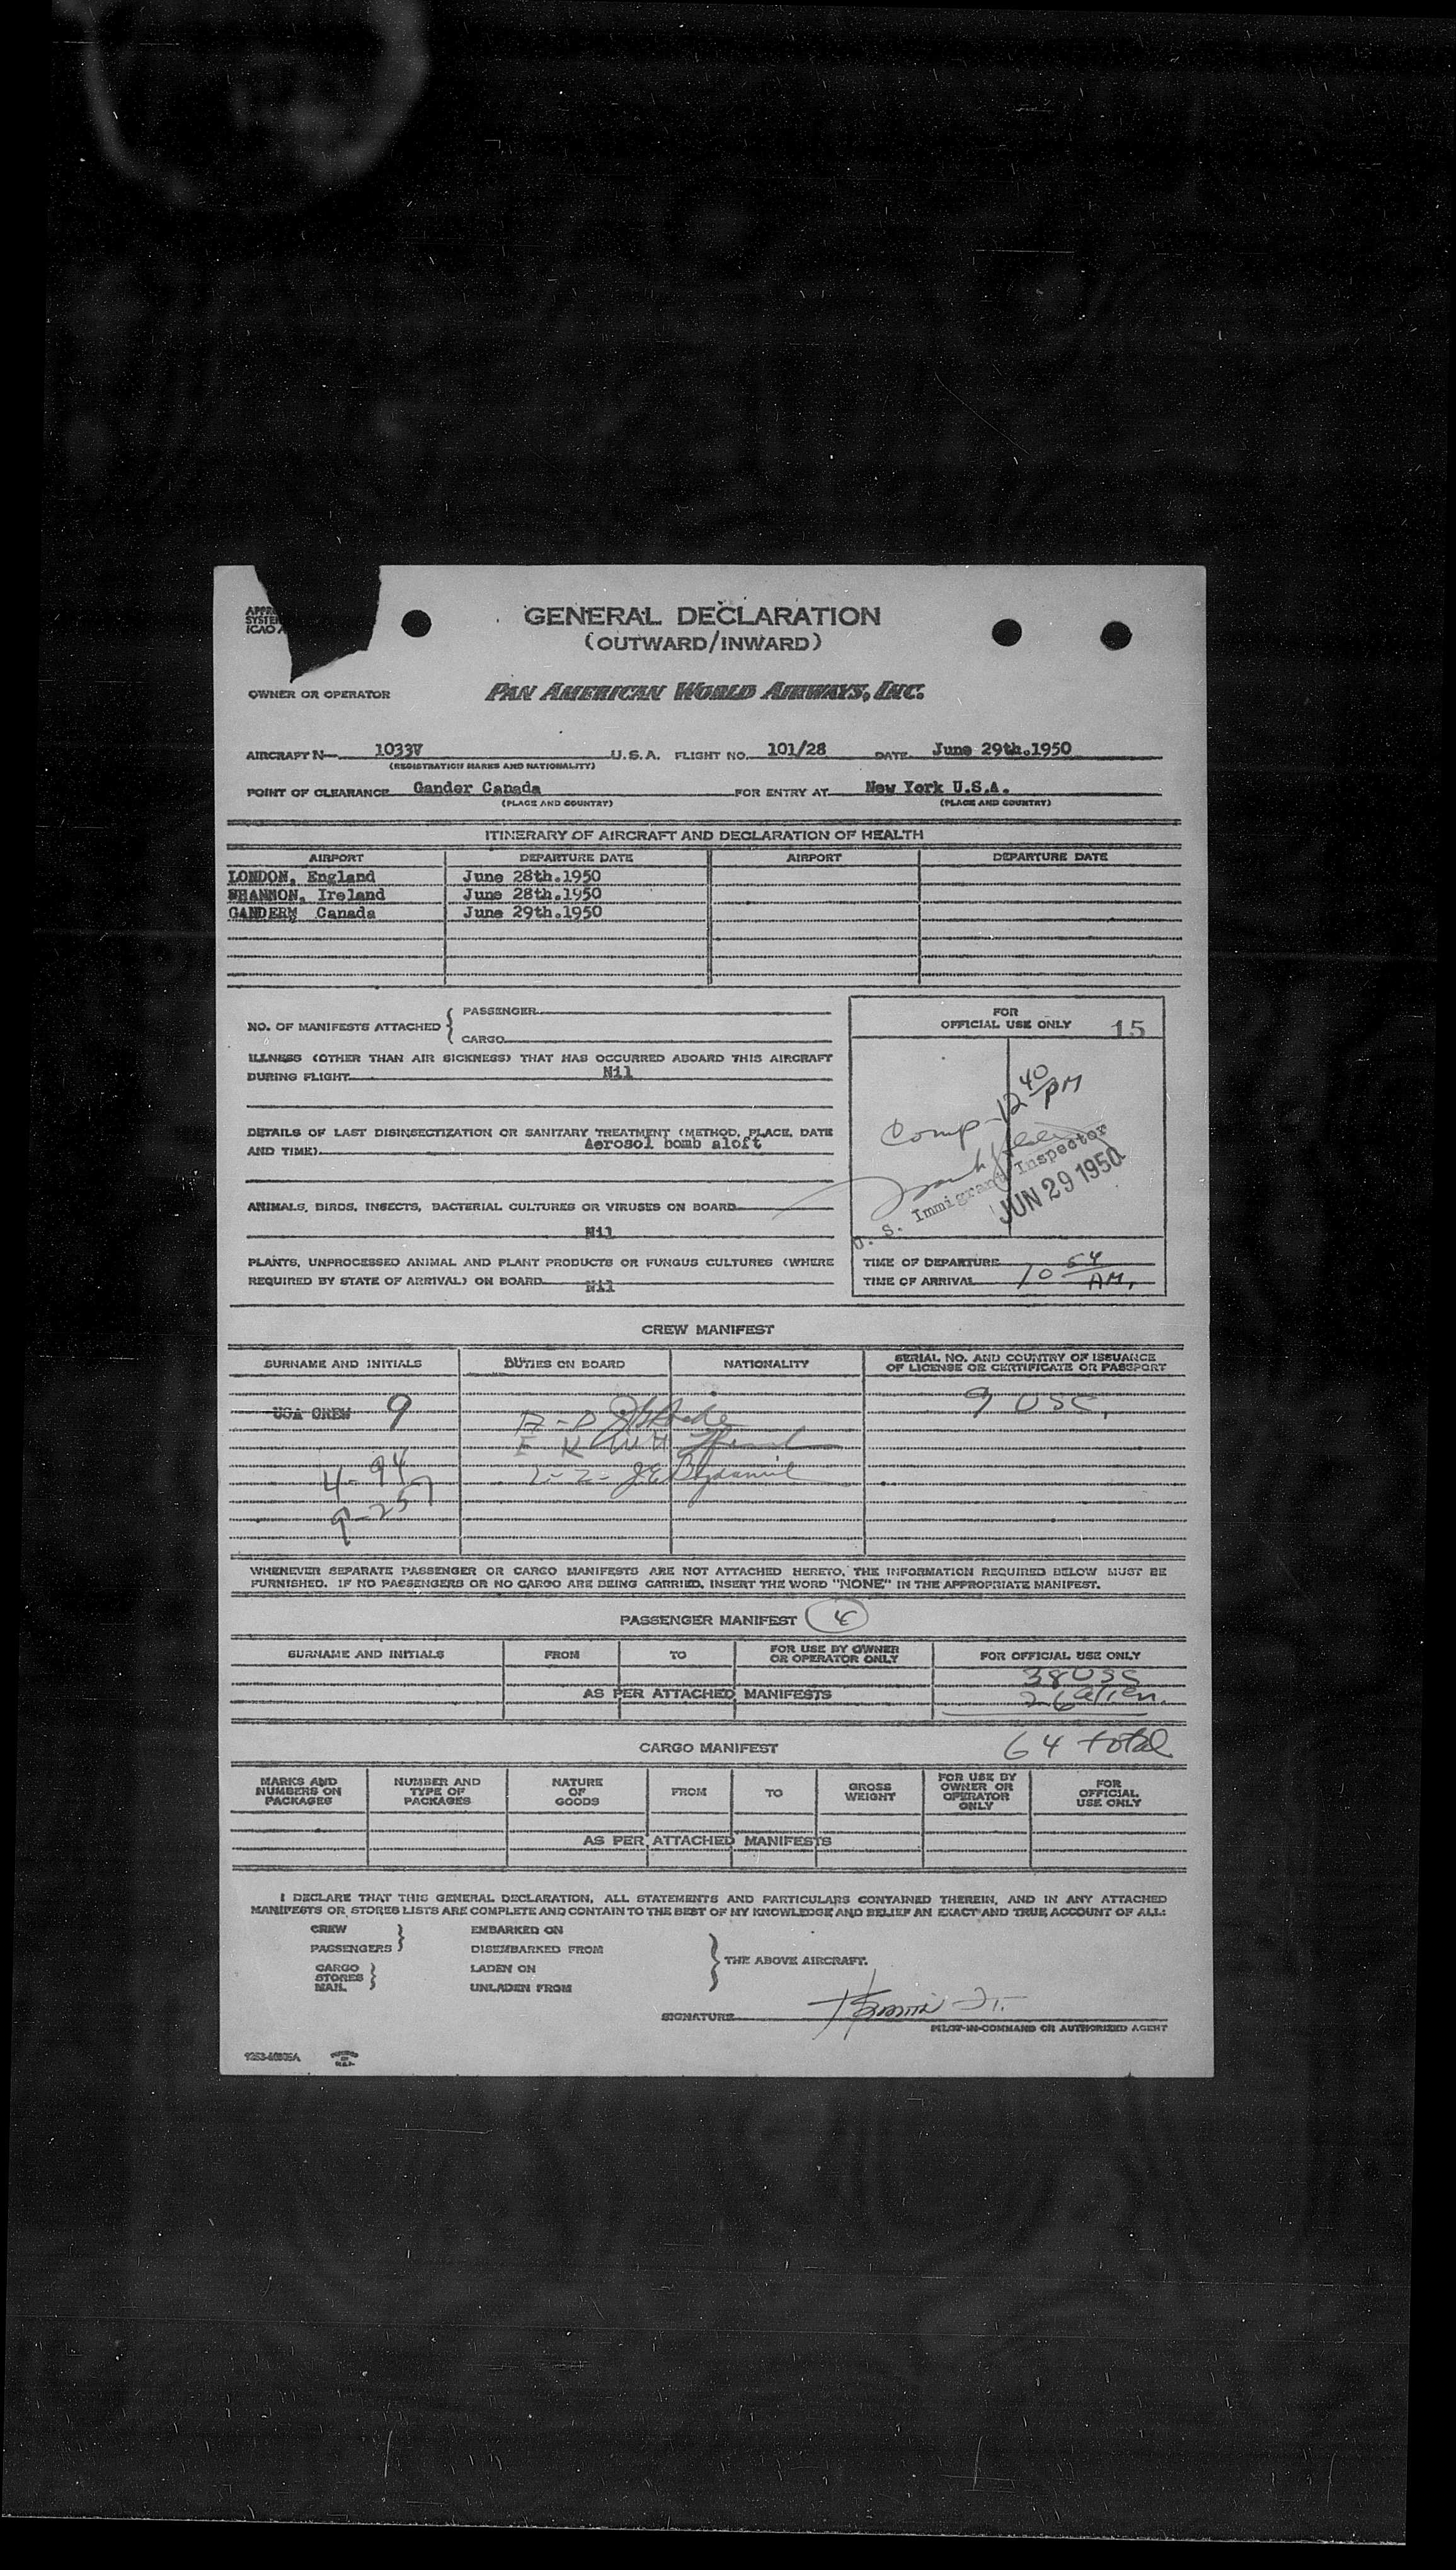 APPR
SYSTE
ICAO A
GENERAL DECLARATION
(OUTWARD/INWARD)
OWNER OR OPERATOR PAN AMERICAN WORLD AIRWAYS, INC.
AIRCRAFT N— 1033V U.S.A. FLIGHT NO. 101/28 DATE June 29th.1950
(REGISTRATION MARKS AND NATIONALITY)
POINT OF CLEARANCE Gander Canada FOR ENTRY AT New York U.S.A.
(PLACE AND COUNTRY) (PLACE AND COUNTRY)
ITINERARY OF AIRCRAFT AND DECLARATION OF HEALTH
AIRPORT DEPARTURE DATE AIRPORT DEPARTURE DATE
LONDON, England June 28th.1950
SHANNON, Ireland June 28th.1950
GANDER, Canada June 29th.1950
NO. OF MANIFESTS ATTACHED { PASSENGER
CARGO
FOR
OFFICIAL USE ONLY 15
ILLNESS (OTHER THAN AIR SICKNESS) THAT HAS OCCURRED ABOARD THIS AIRCRAFT
DURING FLIGHT Nil
Comp 12 40 PM
DETAILS OF LAST DISINSECTIZATION OR SANITARY TREATMENT (METHOD, PLACE, DATE
AND TIME) Aerosol bomb aloft
U. S. Immigrant Inspector
JUN 29 1950
ANIMALS, BIRDS, INSECTS, BACTERIAL CULTURES OR VIRUSES ON BOARD
Nil
PLANTS, UNPROCESSED ANIMAL AND PLANT PRODUCTS OR FUNGUS CULTURES (WHERE
REQUIRED BY STATE OF ARRIVAL) ON BOARD Nil
TIME OF DEPARTURE
TIME OF ARRIVAL 10 54 AM.
CREW MANIFEST
SURNAME AND INITIALS DUTIES ON BOARD NATIONALITY SERIAL NO. AND COUNTRY OF ISSUANCE
OF LICENSE OR CERTIFICATE OR PASSPORT
USA CREW 9 9 USC.
4-94
9-257
WHENEVER SEPARATE PASSENGER OR CARGO MANIFESTS ARE NOT ATTACHED HERETO, THE INFORMATION REQUIRED BELOW MUST BE
FURNISHED. IF NO PASSENGERS OR NO CARGO ARE BEING CARRIED, INSERT THE WORD "NONE" IN THE APPROPRIATE MANIFEST.
PASSENGER MANIFEST
SURNAME AND INITIALS FROM TO FOR USE BY OWNER
OR OPERATOR ONLY FOR OFFICIAL USE ONLY
38 USC
AS PER ATTACHED MANIFESTS 26 alien
64 total
CARGO MANIFEST
MARKS AND
NUMBERS ON
PACKAGES NUMBER AND
TYPE OF
PACKAGES NATURE
OF
GOODS FROM TO GROSS
WEIGHT FOR USE BY
OWNER OR
OPERATOR
ONLY FOR
OFFICIAL
USE ONLY
AS PER ATTACHED MANIFESTS
I DECLARE THAT THIS GENERAL DECLARATION, ALL STATEMENTS AND PARTICULARS CONTAINED THEREIN, AND IN ANY ATTACHED
MANIFESTS OR STORES LISTS ARE COMPLETE AND CONTAIN TO THE BEST OF MY KNOWLEDGE AND BELIEF AN EXACT AND TRUE ACCOUNT OF ALL:
CREW EMBARKED ON
PASSENGERS DISEMBARKED FROM
THE ABOVE AIRCRAFT.
CARGO LADEN ON
STORES
MAIL UNLADEN FROM
SIGNATURE
PILOT-IN-COMMAND OR AUTHORIZED AGENT